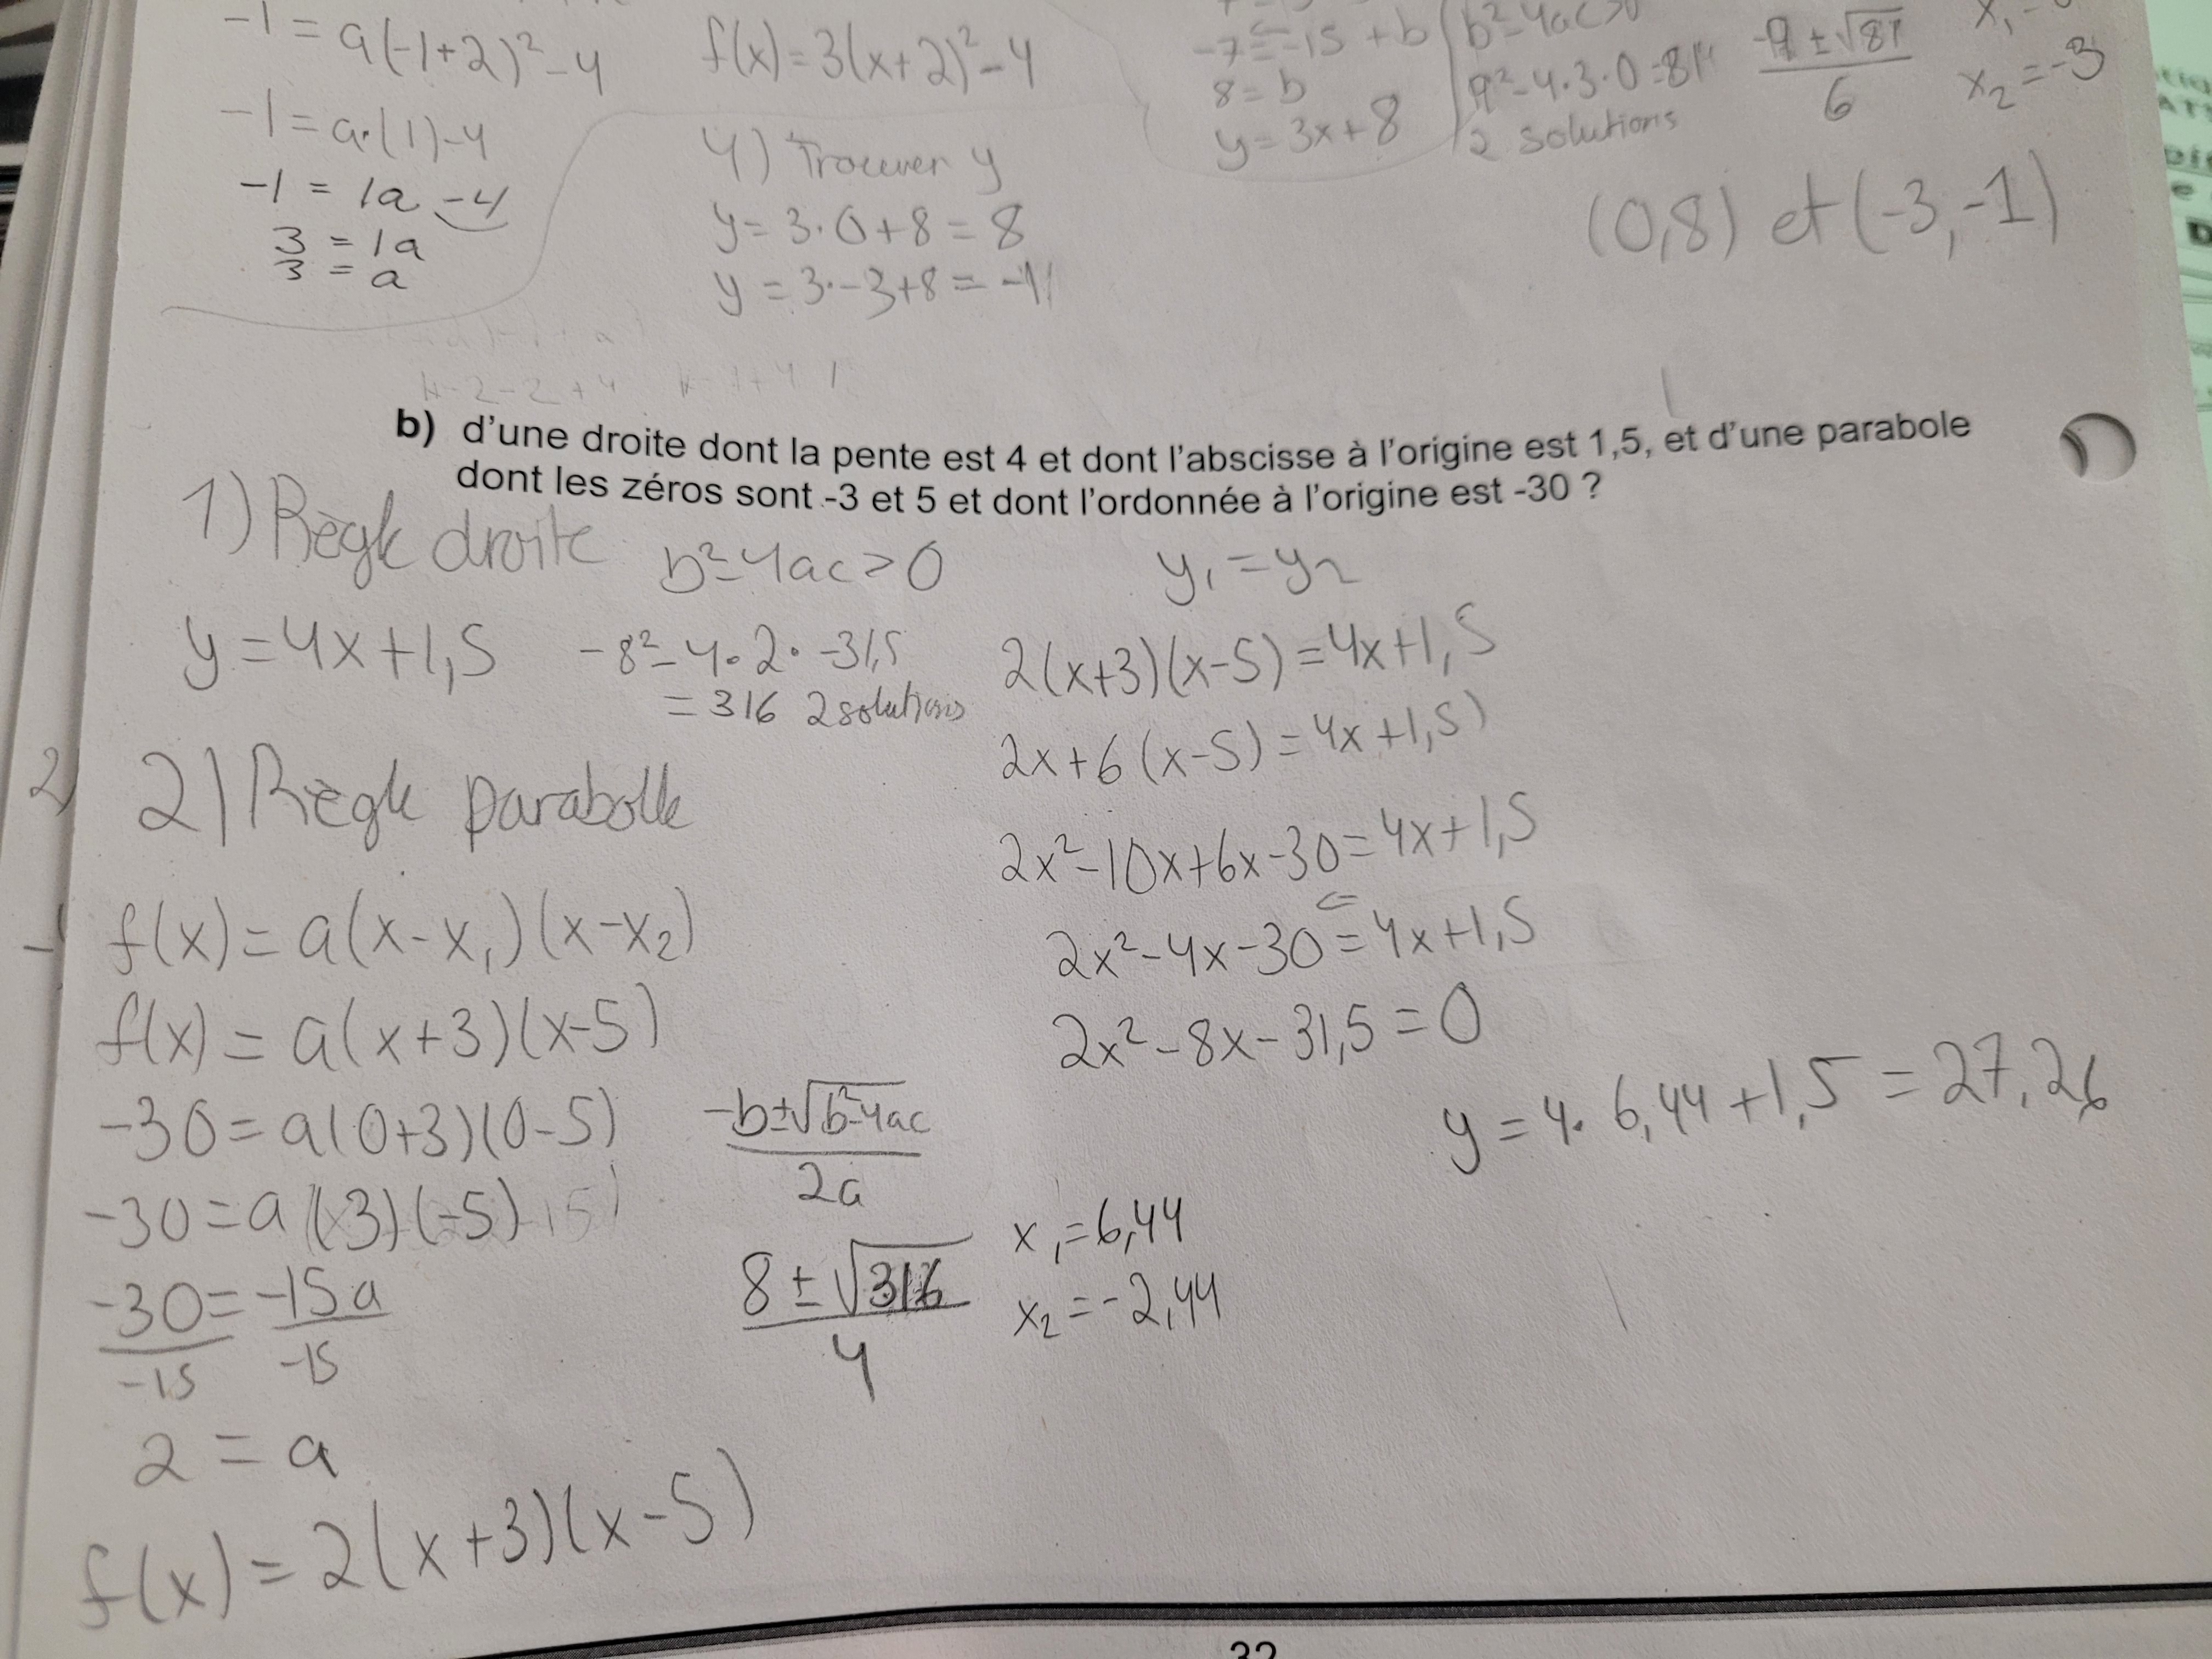 -1 = a(-1+2)² - 4
-1 = a·(1)-4
-1 = 1a - 4
3 = 1a
3 = a
f(x) = 3(x+2)² - 4
4) Trouver y
y = 3·0+8 = 8
y = 3·-3+8 = -1
-7 = -15 + b
8 = b
y = 3x+8
b²-4ac>0
9²-4·3·0=81
2 solutions
-9 ± √81
6
x₂ = -3
(0,8) et (-3,-1)
b) d'une droite dont la pente est 4 et dont l'abscisse à l'origine est 1,5, et d'une parabole
dont les zéros sont -3 et 5 et dont l'ordonnée à l'origine est -30 ?
1) Règle droite
y = 4x+1,5
b²-4ac>0
-8²-4·2·-31,5
= 316 2 solutions
2) Règle parabolle
f(x) = a(x-x₁)(x-x₂)
f(x) = a(x+3)(x-5)
-30 = a(0+3)(0-5)
-30 = a(3)(-5)
-30 = -15a
-15 -15
2 = a
f(x) = 2(x+3)(x-5)
-b±√b²-4ac
2a
8 ± √316
4
x₁ = 6,44
x₂ = -2,44
y₁ = y₂
2(x+3)(x-5) = 4x+1,5
2x+6(x-5) = 4x+1,5)
2x²-10x+6x-30 = 4x+1,5
2x²-4x-30 = 4x+1,5
2x²-8x-31,5 = 0
y = 4·6,44+1,5 = 27,26
32